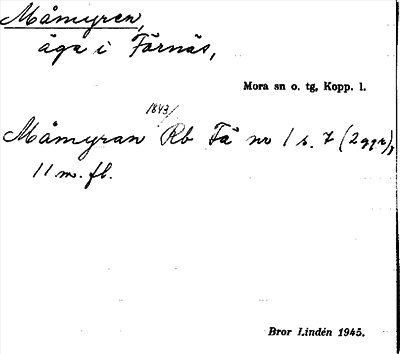 Måmyren,
äga i Färnäs,
Mora sn o. tg, Kopp. l.
1843/
Måmyran Rb Fä nr 1 s. 7 (2 ggr),
11 m. fl.
Bror Lindén 1945.